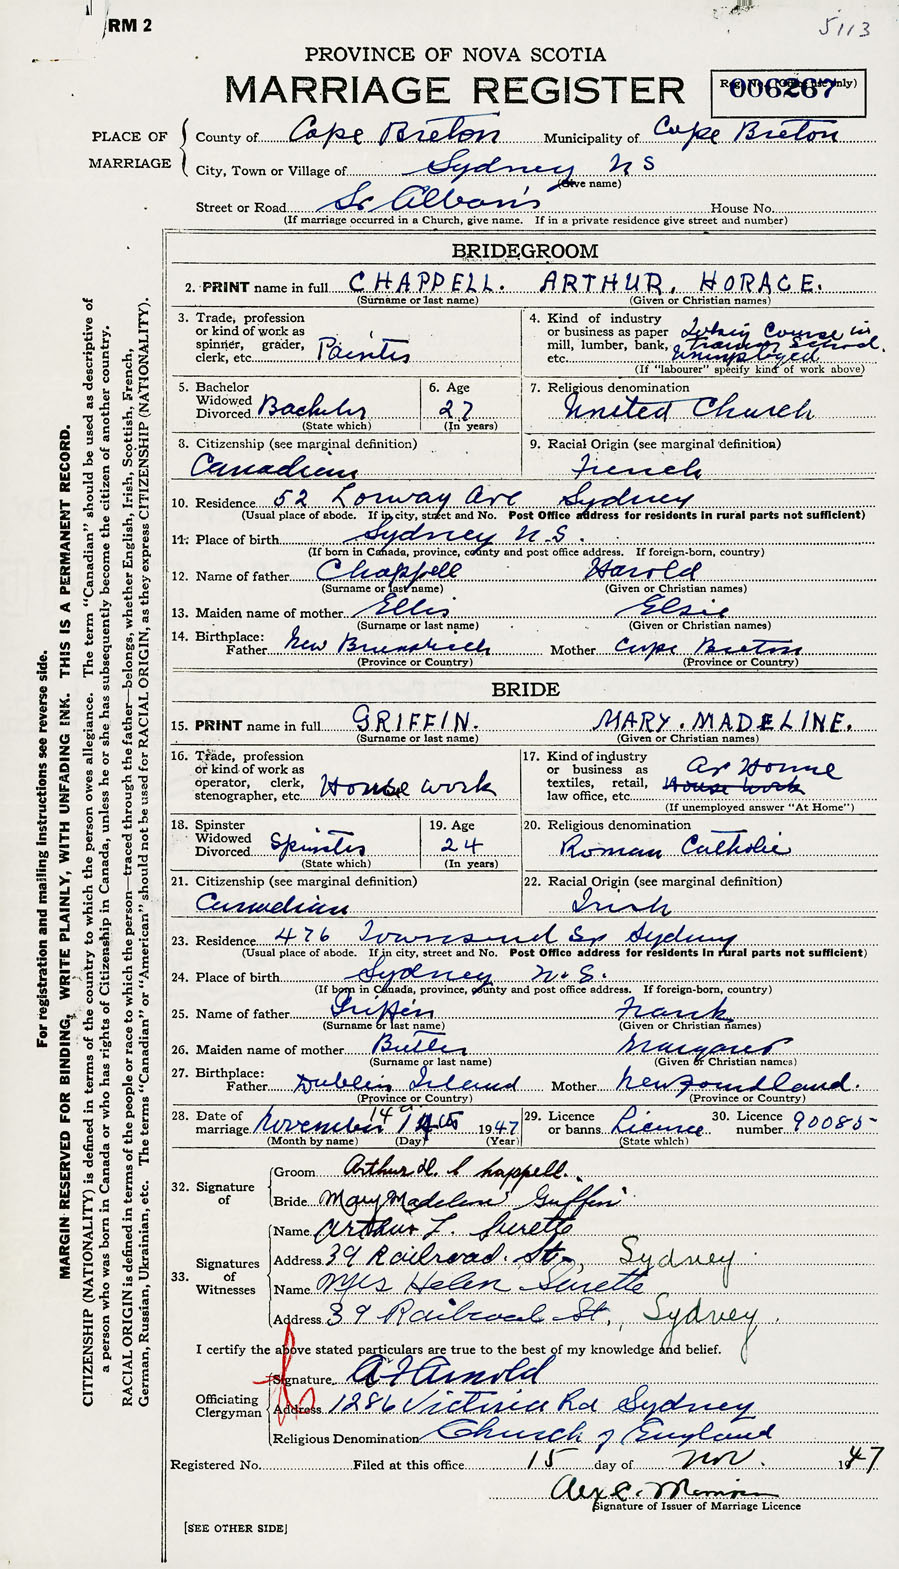 RM 2
5113
PROVINCE OF NOVA SCOTIA
MARRIAGE REGISTER
Reg. No. (Office use only)
006267
PLACE OF MARRIAGE
County of Cape Breton Municipality of Cape Breton
City, Town or Village of Sydney N S
(Give name)
Street or Road St Alban's House No.
(If marriage occurred in a Church, give name. If in a private residence give street and number)
BRIDEGROOM
2. PRINT name in full CHAPPELL. ARTHUR. HORACE.
(Surname or last name) (Given or Christian names)
3. Trade, profession or kind of work as spinner, grader, clerk, etc. Painter
4. Kind of industry or business as paper mill, lumber, bank, etc. Taking Course in Training School. Unemployed
(If "labourer" specify kind of work above)
5. Bachelor Widowed Divorced Bachelor
(State which)
6. Age 27
(In years)
7. Religious denomination
United Church
8. Citizenship (see marginal definition)
Canadian
9. Racial Origin (see marginal definition)
French
10. Residence 52 Lorway Ave Sydney
(Usual place of abode. If in city, street and No. Post Office address for residents in rural parts not sufficient)
11. Place of birth Sydney N.S.
(If born in Canada, province, county and post office address. If foreign-born, country)
12. Name of father Chappell Harold
(Surname or last name) (Given or Christian names)
13. Maiden name of mother Ellis Elsie
(Surname or last name) (Given or Christian names)
14. Birthplace:
Father New Brunswick Mother Cape Breton
(Province or Country) (Province or Country)
BRIDE
15. PRINT name in full GRIFFIN. MARY. MADELINE.
(Surname or last name) (Given or Christian names)
16. Trade, profession or kind of work as operator, clerk, stenographer, etc. House work
17. Kind of industry or business as textiles, retail, law office, etc. At Home House work
(If unemployed answer "At Home")
18. Spinster Widowed Divorced Spinster
(State which)
19. Age 24
(In years)
20. Religious denomination
Roman Catholic
21. Citizenship (see marginal definition)
Canadian
22. Racial Origin (see marginal definition)
Irish
23. Residence 476 Townsend St Sydney
(Usual place of abode. If in city, street and No. Post Office address for residents in rural parts not sufficient)
24. Place of birth Sydney N.S.
(If born in Canada, province, county and post office address. If foreign-born, country)
25. Name of father Griffin Frank
(Surname or last name) (Given or Christian names)
26. Maiden name of mother Butler Margaret
(Surname or last name) (Given or Christian names)
27. Birthplace:
Father Dublin Ireland Mother Newfoundland.
(Province or Country) (Province or Country)
28. Date of marriage November 14 1947
(Month by name) (Day) (Year)
29. Licence or banns. Licence
(State which)
30. Licence number 90085
32. Signature of
Groom Arthur H. Chappell.
Bride Mary Madeline Griffin
33. Signatures of Witnesses
Name Arthur L. Surette
Address 39 Railroad. St., Sydney.
Name Mrs Helen Surette
Address 39 Railroad St., Sydney.
I certify the above stated particulars are true to the best of my knowledge and belief.
Officiating Clergyman
Signature A F Arnold
Address 1286 Victoria Rd Sydney
Religious Denomination Church of England
Registered No. Filed at this office 15 day of Nov. 1947
Signature of Issuer of Marriage Licence
[SEE OTHER SIDE]
For registration and mailing instructions see reverse side.
MARGIN RESERVED FOR BINDING, WRITE PLAINLY, WITH UNFADING INK. THIS IS A PERMANENT RECORD.
CITIZENSHIP (NATIONALITY) is defined in terms of the country to which the person owes allegiance. The term "Canadian" should be used as descriptive of
a person who was born in Canada or who has rights of Citizenship in Canada, unless he or she has subsequently become the citizen of another country.
RACIAL ORIGIN is defined in terms of the people or race to which the person—traced through the father—belongs, whether English, Irish, Scottish, French,
German, Russian, Ukrainian, etc. The terms "Canadian" or "American" should not be used for RACIAL ORIGIN, as they express CITIZENSHIP (NATIONALITY).